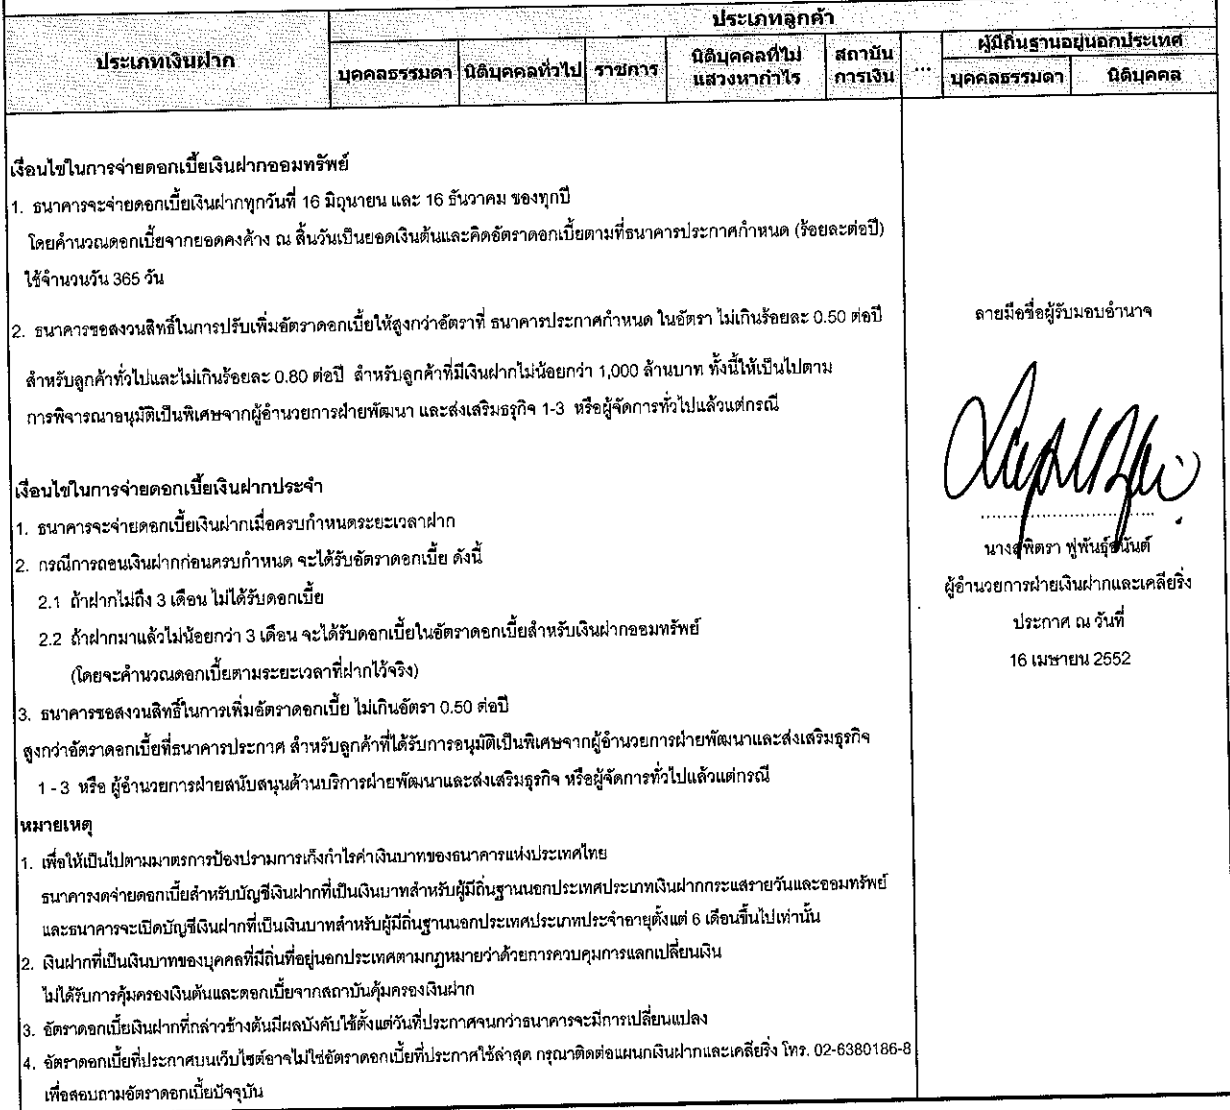 ประเภทเงินฝาก
ประเภทลูกค้า
บุคคลธรรมดา
นิติบุคคลทั่วไป
ราชการ
นิติบุคคลที่ไม่
แสวงหากำไร
สถาบัน
การเงิน
...
ผู้มีถิ่นฐานอยู่นอกประเทศ
บุคคลธรรมดา
นิติบุคคล
เงื่อนไขในการจ่ายดอกเบี้ยเงินฝากออมทรัพย์
1. ธนาคารจะจ่ายดอกเบี้ยเงินฝากทุกวันที่ 16 มิถุนายน และ 16 ธันวาคม ของทุกปี
โดยคำนวณดอกเบี้ยจากยอดคงค้าง ณ สิ้นวันเป็นยอดเงินต้นและคิดอัตราดอกเบี้ยตามที่ธนาคารประกาศกำหนด (ร้อยละต่อปี)
ใช้จำนวนวัน 365 วัน
2. ธนาคารขอสงวนสิทธิ์ในการปรับเพิ่มอัตราดอกเบี้ยให้สูงกว่าอัตราที่ ธนาคารประกาศกำหนด ในอัตรา ไม่เกินร้อยละ 0.50 ต่อปี
สำหรับลูกค้าทั่วไปและไม่เกินร้อยละ 0.80 ต่อปี สำหรับลูกค้าที่มีเงินฝากไม่น้อยกว่า 1,000 ล้านบาท ทั้งนี้ให้เป็นไปตาม
การพิจารณาอนุมัติเป็นพิเศษจากผู้อำนวยการฝ่ายพัฒนา และส่งเสริมธุรกิจ 1-3 หรือผู้จัดการทั่วไปแล้วแต่กรณี
เงื่อนไขในการจ่ายดอกเบี้ยเงินฝากประจำ
1. ธนาคารจะจ่ายดอกเบี้ยเงินฝากเมื่อครบกำหนดระยะเวลาฝาก
2. กรณีการถอนเงินฝากก่อนครบกำหนด จะได้รับอัตราดอกเบี้ย ดังนี้
2.1 ถ้าฝากไม่ถึง 3 เดือน ไม่ได้รับดอกเบี้ย
2.2 ถ้าฝากมาแล้วไม่น้อยกว่า 3 เดือน จะได้รับดอกเบี้ยในอัตราดอกเบี้ยสำหรับเงินฝากออมทรัพย์
(โดยจะคำนวณดอกเบี้ยตามระยะเวลาที่ฝากไว้จริง)
3. ธนาคารขอสงวนสิทธิ์ในการเพิ่มอัตราดอกเบี้ย ไม่เกินอัตรา 0.50 ต่อปี
สูงกว่าอัตราดอกเบี้ยที่ธนาคารประกาศ สำหรับลูกค้าที่ได้รับการอนุมัติเป็นพิเศษจากผู้อำนวยการฝ่ายพัฒนาและส่งเสริมธุรกิจ
1 - 3 หรือ ผู้อำนวยการฝ่ายสนับสนุนด้านบริการฝ่ายพัฒนาและส่งเสริมธุรกิจ หรือผู้จัดการทั่วไปแล้วแต่กรณี
หมายเหตุ
1. เพื่อให้เป็นไปตามมาตรการป้องปรามการเก็งกำไรค่าเงินบาทของธนาคารแห่งประเทศไทย
ธนาคารงดจ่ายดอกเบี้ยสำหรับบัญชีเงินฝากที่เป็นเงินบาทสำหรับผู้มีถิ่นฐานนอกประเทศประเภทเงินฝากกระแสรายวันและออมทรัพย์
และธนาคารจะเปิดบัญชีเงินฝากที่เป็นเงินบาทสำหรับผู้มีถิ่นฐานนอกประเทศประเภทประจำอายุตั้งแต่ 6 เดือนขึ้นไปเท่านั้น
2. เงินฝากที่เป็นเงินบาทของบุคคลที่มีถิ่นที่อยู่นอกประเทศตามกฎหมายว่าด้วยการควบคุมการแลกเปลี่ยนเงิน
ไม่ได้รับการคุ้มครองเงินต้นและดอกเบี้ยจากสถาบันคุ้มครองเงินฝาก
3. อัตราดอกเบี้ยเงินฝากที่กล่าวข้างต้นมีผลบังคับใช้ตั้งแต่วันที่ประกาศจนกว่าธนาคารจะมีการเปลี่ยนแปลง
4. อัตราดอกเบี้ยที่ประกาศบนเว็บไซต์อาจไม่ใช่อัตราดอกเบี้ยที่ประกาศใช้ล่าสุด กรุณาติดต่อแผนกเงินฝากและเคลียริ่ง โทร. 02-6380186-8
เพื่อสอบถามอัตราดอกเบี้ยปัจจุบัน
ลายมือชื่อผู้รับมอบอำนาจ
นางสุพิตรา ฟูพันธุ์อนันต์
ผู้อำนวยการฝ่ายเงินฝากและเคลียริ่ง
ประกาศ ณ วันที่
16 เมษายน 2552